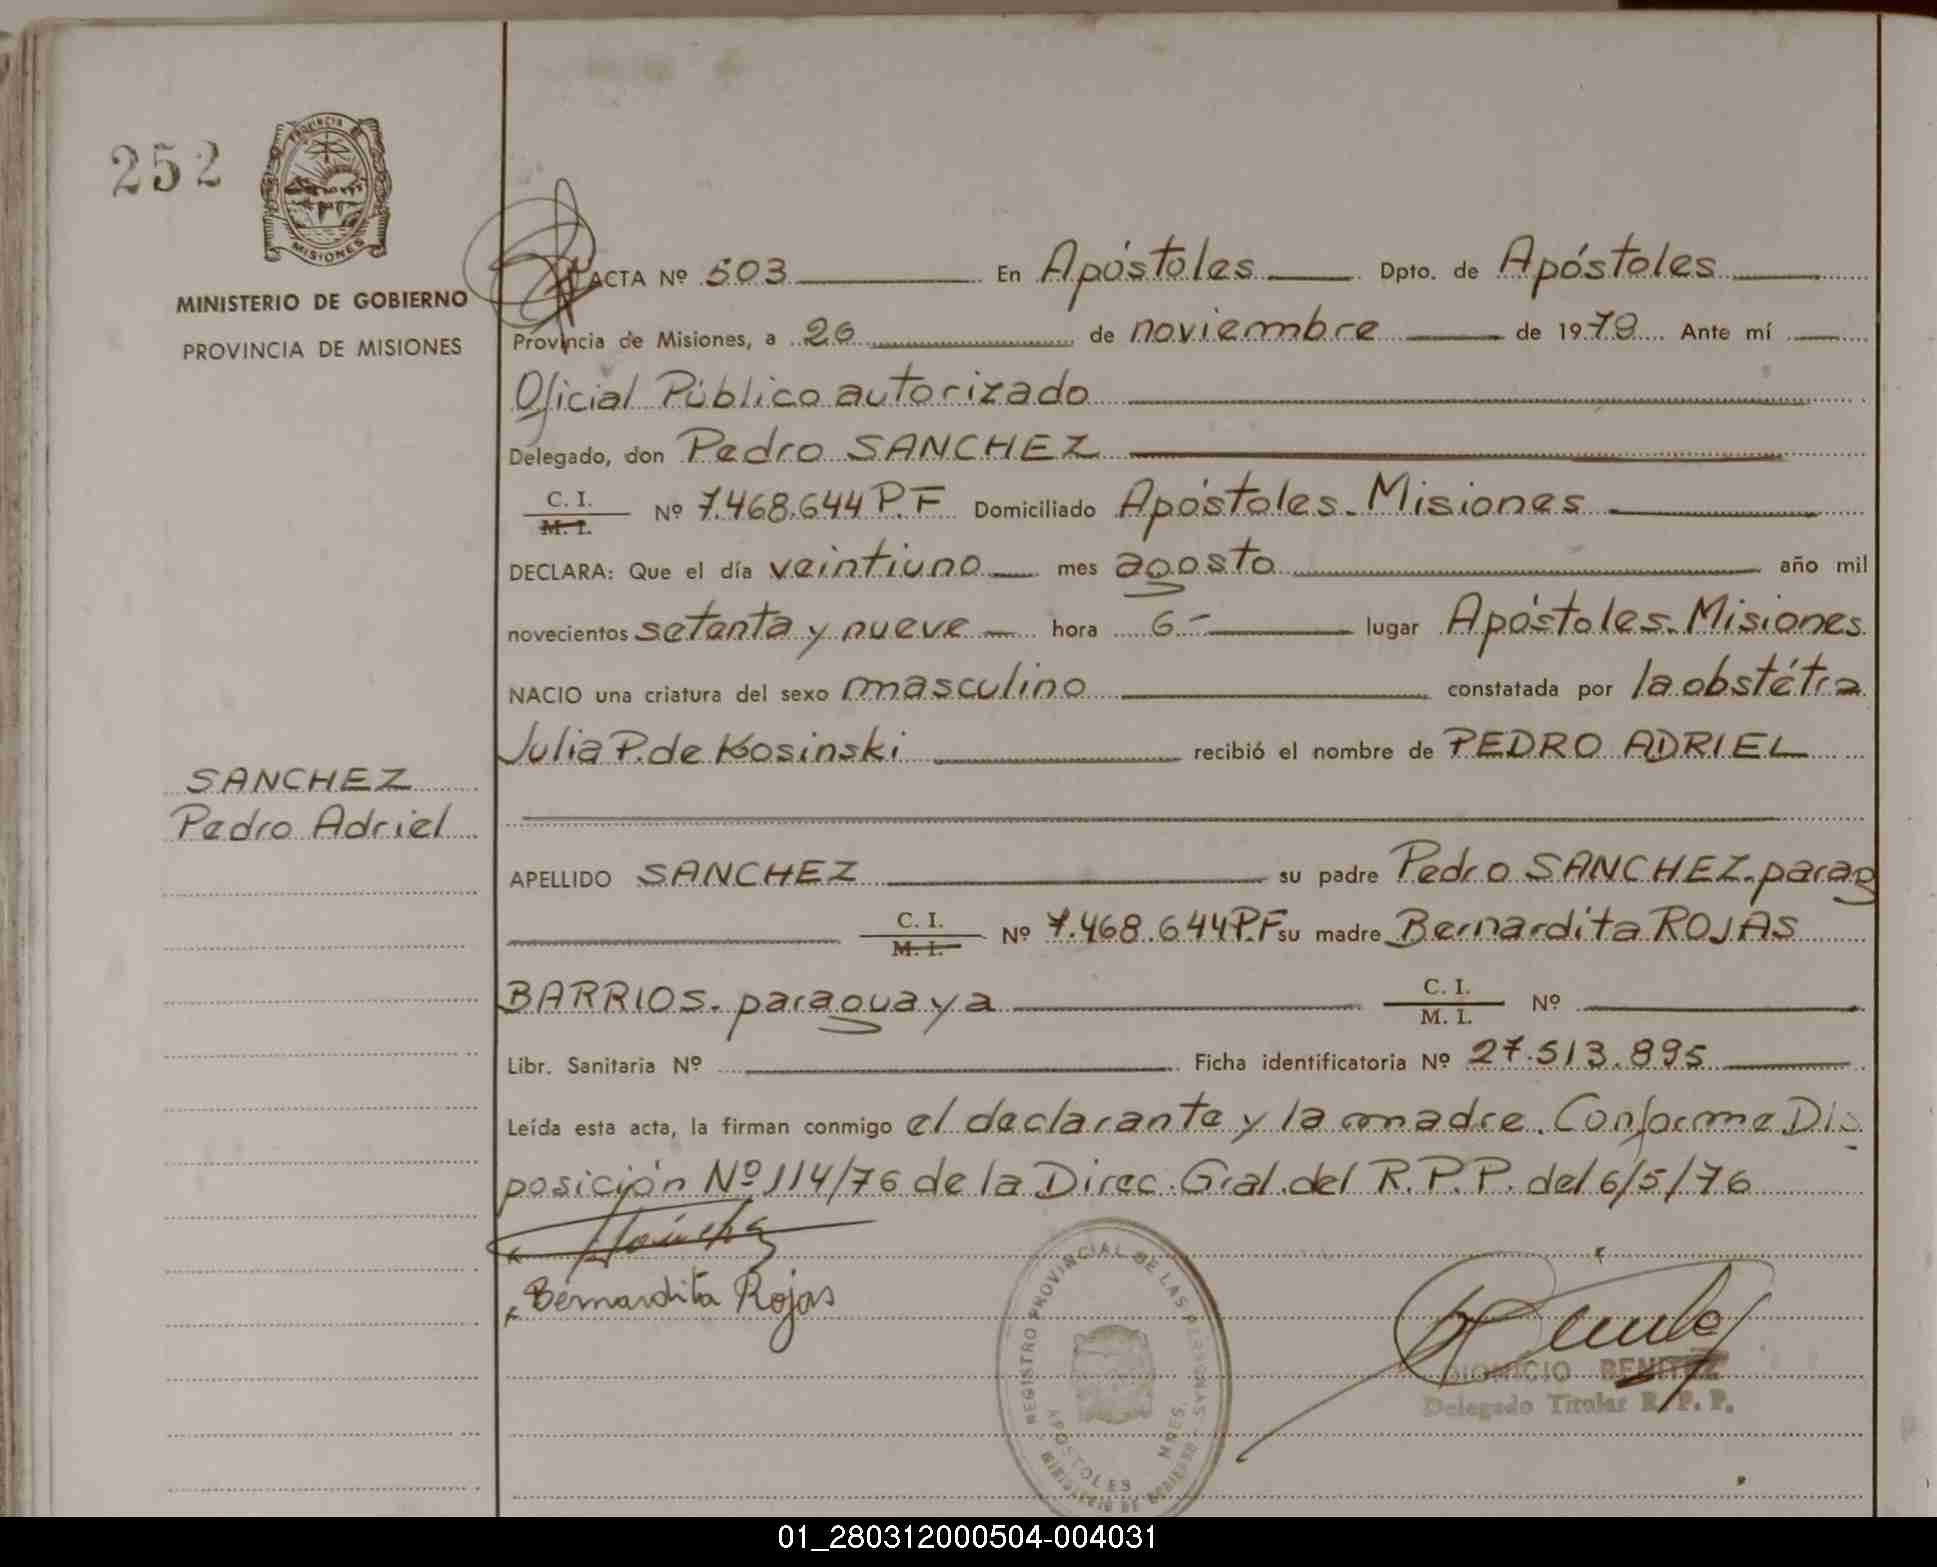 252
PROVINCIA DE
MISIONES
MINISTERIO DE GOBIERNO
PROVINCIA DE MISIONES
ACTA Nº 503 En Apóstoles Dpto. de Apóstoles
Provincia de Misiones, a 26 de noviembre de 1979 Ante mí
Oficial Público autorizado
Delegado, don Pedro SANCHEZ
C. I.
M. I.
Nº 7.468.644 P.F Domiciliado Apóstoles - Misiones
DECLARA: Que el día veintiuno mes agosto año mil
novecientos setenta y nueve hora 6.- lugar Apóstoles - Misiones
NACIO una criatura del sexo masculino constatada por la obstétra
Julia P. de Kosinski recibió el nombre de PEDRO ADRIEL
SANCHEZ
Pedro Adriel
APELLIDO SANCHEZ su padre Pedro SANCHEZ - parag
C. I.
M. I.
Nº 7.468.644 P.F su madre Bernardita ROJAS
BARRIOS - paraguaya C. I.
M. I.
Nº
Libr. Sanitaria Nº Ficha identificatoria Nº 27.513.895
Leída esta acta, la firman conmigo el declarante y la madre. Conforme Dis
posición Nº 114/76 de la Direc. Gral. del R.P.P. del 6/5/76
Bernardita Rojas
REGISTRO PROVINCIAL DE LAS PERSONAS
APOSTOLES MNES.
MINISTERIO DE GOBIERNO
DIONICIO BENITEZ
Delegado Titular R. P. P.
01_280312000504-004031